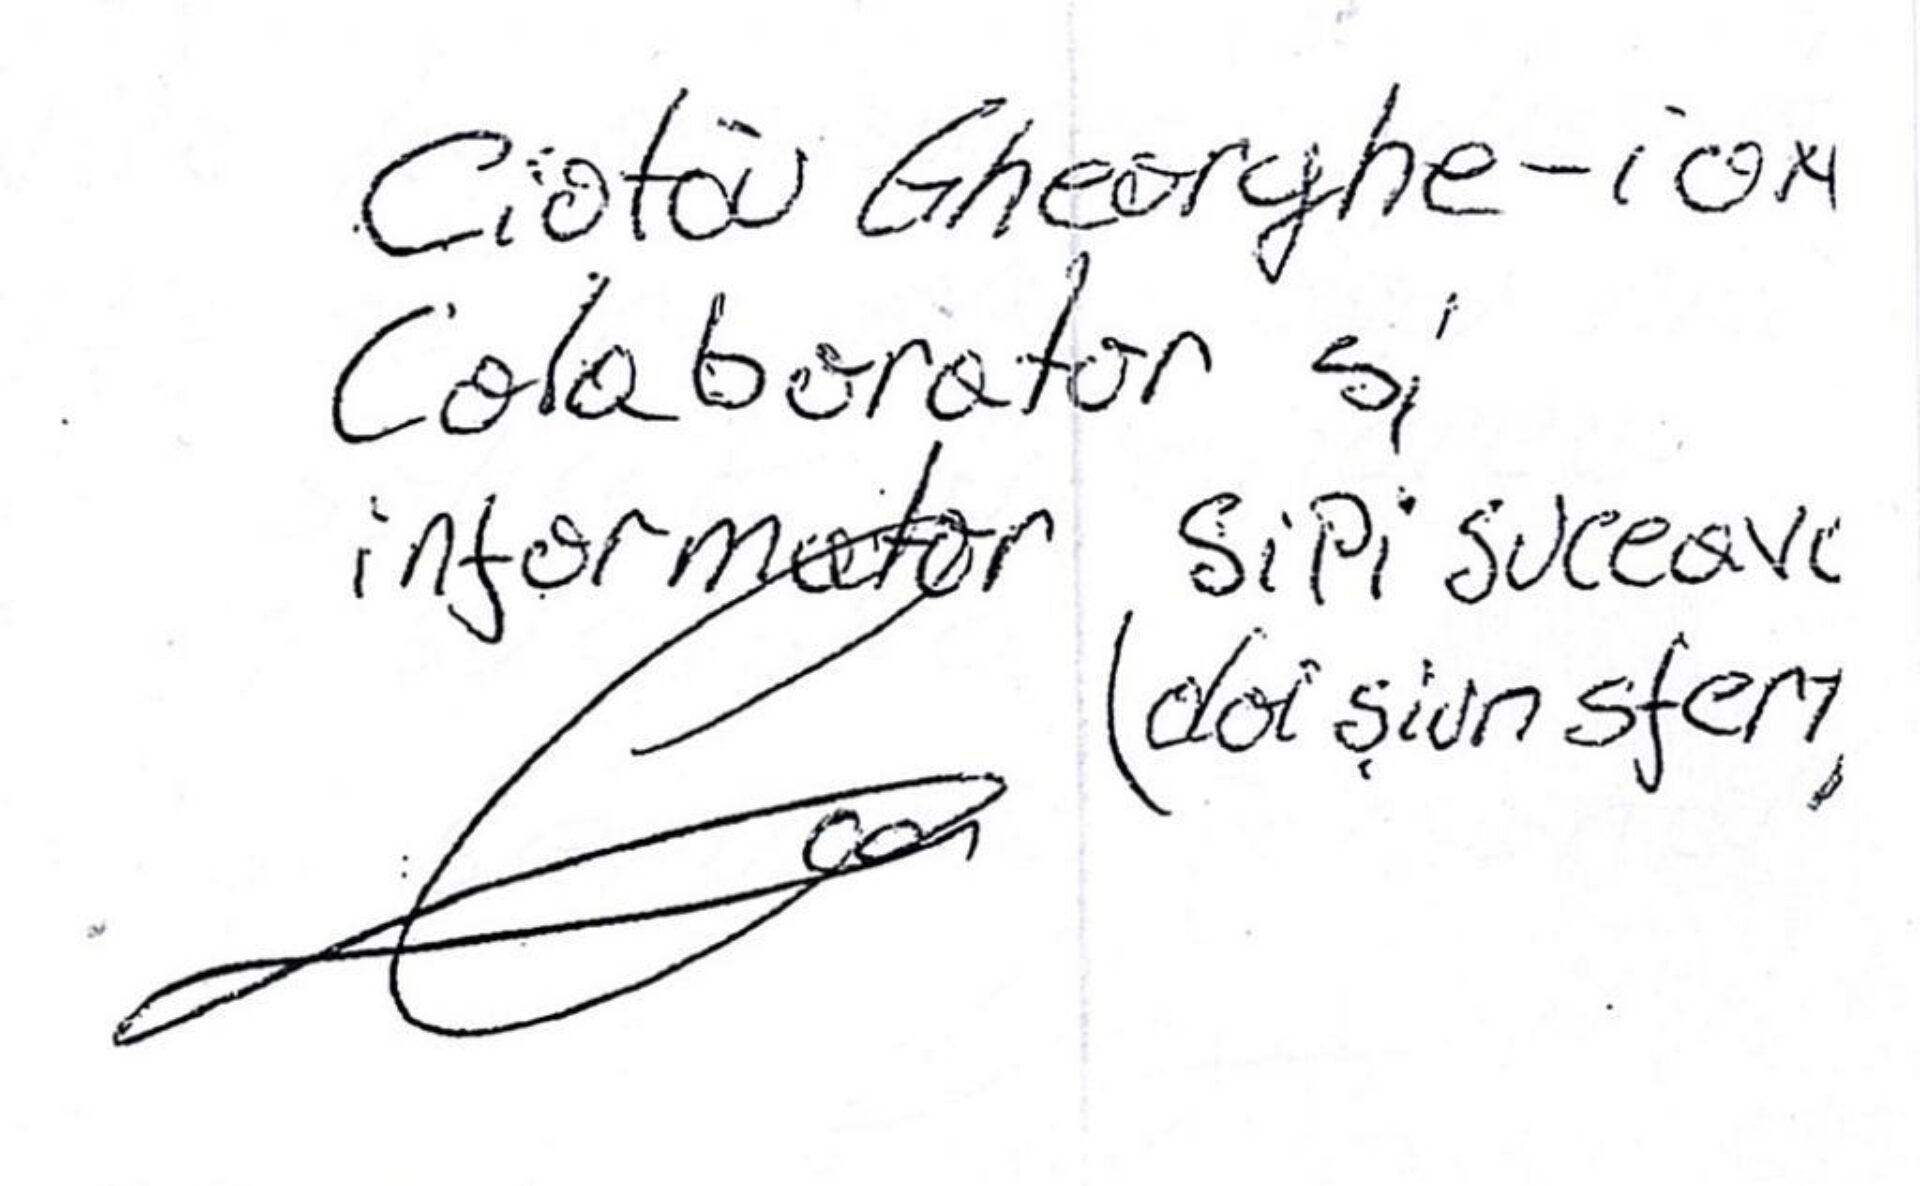 Ciotău Gheorghe-ion
Colaborator și
informator SiPi suceav
(doi șiun sfert)